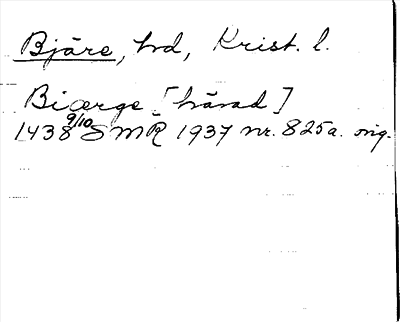 Bjäre, hd, Krist. l.
Biærge [härad]
1438 9/10 SMR 1937 nr. 825a. orig.